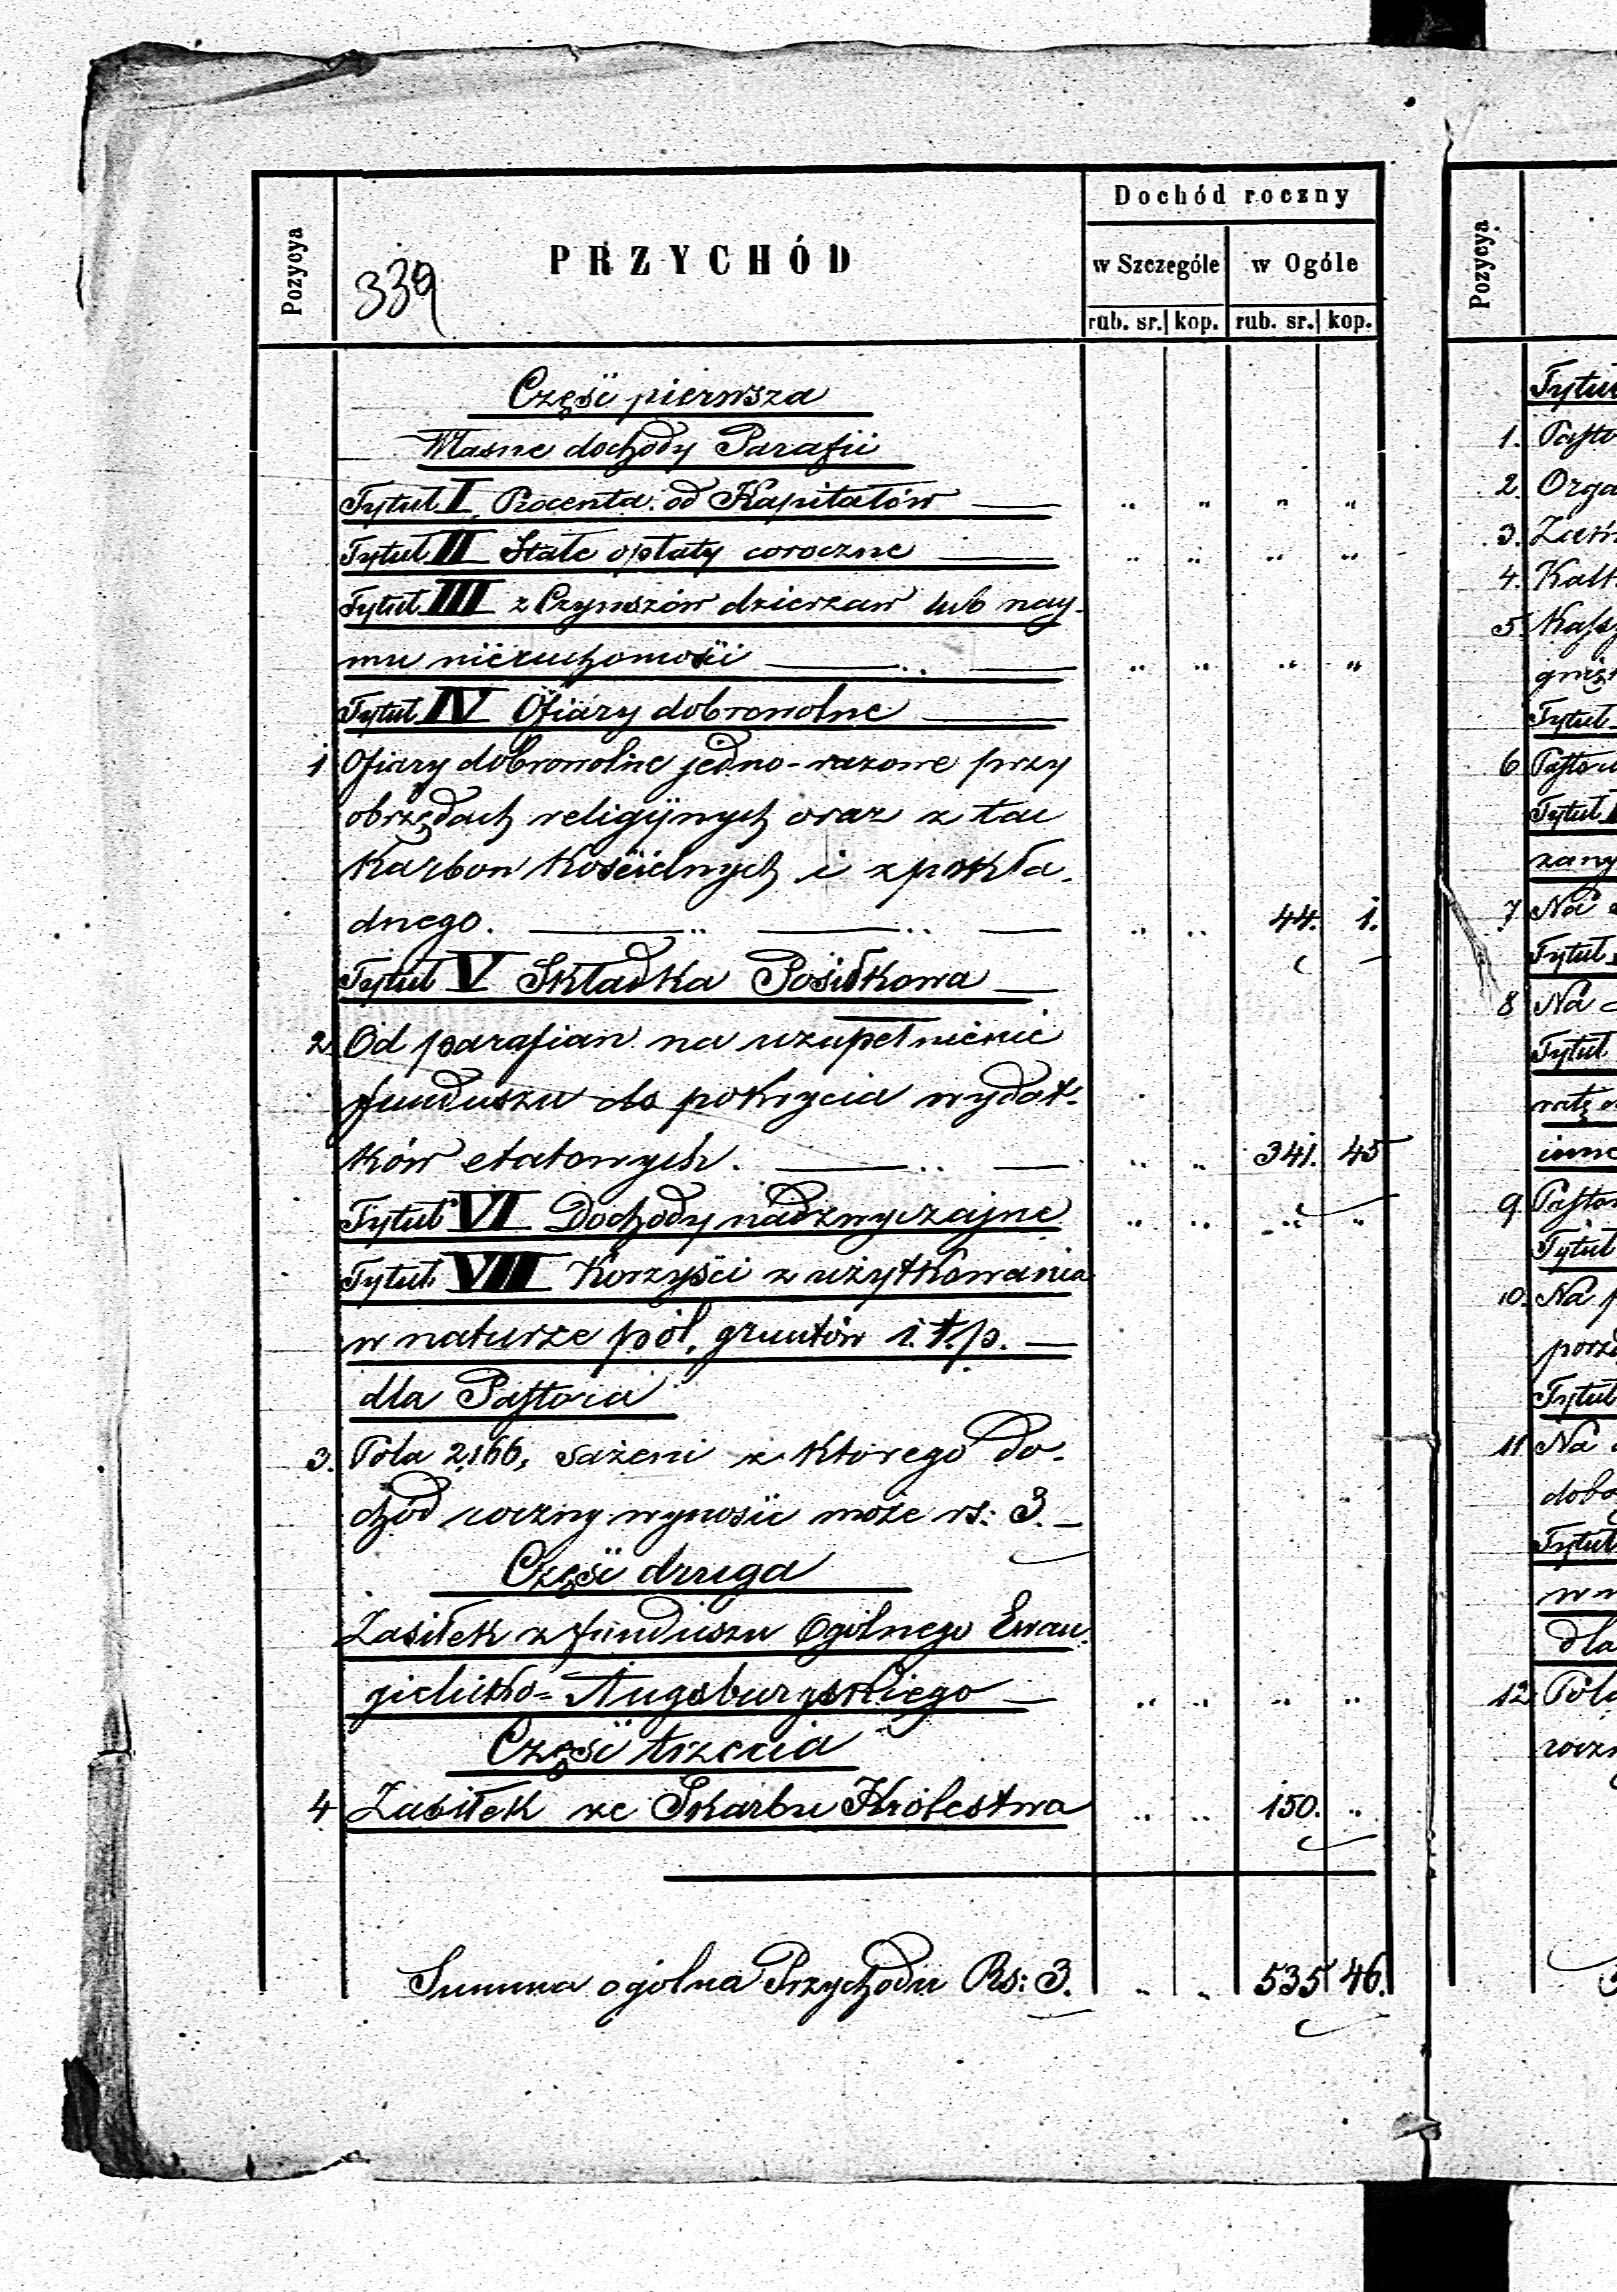 Pozycya
339
PRZYCHÓD
Dochód roczny
w Szczególe w Ogóle
rub. sr. kop. rub. sr. kop.
Część pierwsza
Własne dochody Parafii
Tytuł I, Procenta od Kapitałów — „ „ „ „
Tytuł II Stałe opłaty coroczne — „ „ „ „
Tytuł III z Czynszów dzierzaw lub nay-
mu nieruchomości — „ — „ „ „ „
Tytuł IV Ofiary dobrowolne —
1 Ofiary dobrowolne jedno-razowe przy
obrzędach religijnych oraz z tac
Karbon Kościelnych i z pokła-
dnego. — „ — „ — „ „ 44. 1.
Tytuł V Składka Posiłkowa —
2 Od parafian na uzupełnienie
funduszu do pokrycia wydat-
ków etatowych. — „ — „ „ 341. 45
Tytuł VI Dochody nadzwyczajne „ „ „ „
Tytuł VII Korzyści z użytkowania
w naturze pól, gruntów i.t.p. —
dla Pastora
3. Pola 2,166, sażeni z ktorego do-
chód roczny wynosić może rs: 3. —
Część druga
Zasiłek z funduszu Ogólnego Ewan-
gielicko-Augsburgskiego — „ „ „ „
Część trzecia
4 Zasiłek ze Skarbu Królestwa „ „ 150. „
Summa ogólna Przychodu Rs: 3. „ „ 535 46.
Pozycya
Tytuł
1. Pasto
2. Orga
3.
4. Kalk
5.
Tytuł
6 Pasto
Tytuł
zany
7. Na
Tytuł
8 Na
Tytuł
inne
9 Pasto
Tytuł
10. Na p
porzą
Tytuł
11 Na
Tytuł
w n
dla
12. Pola
rocz